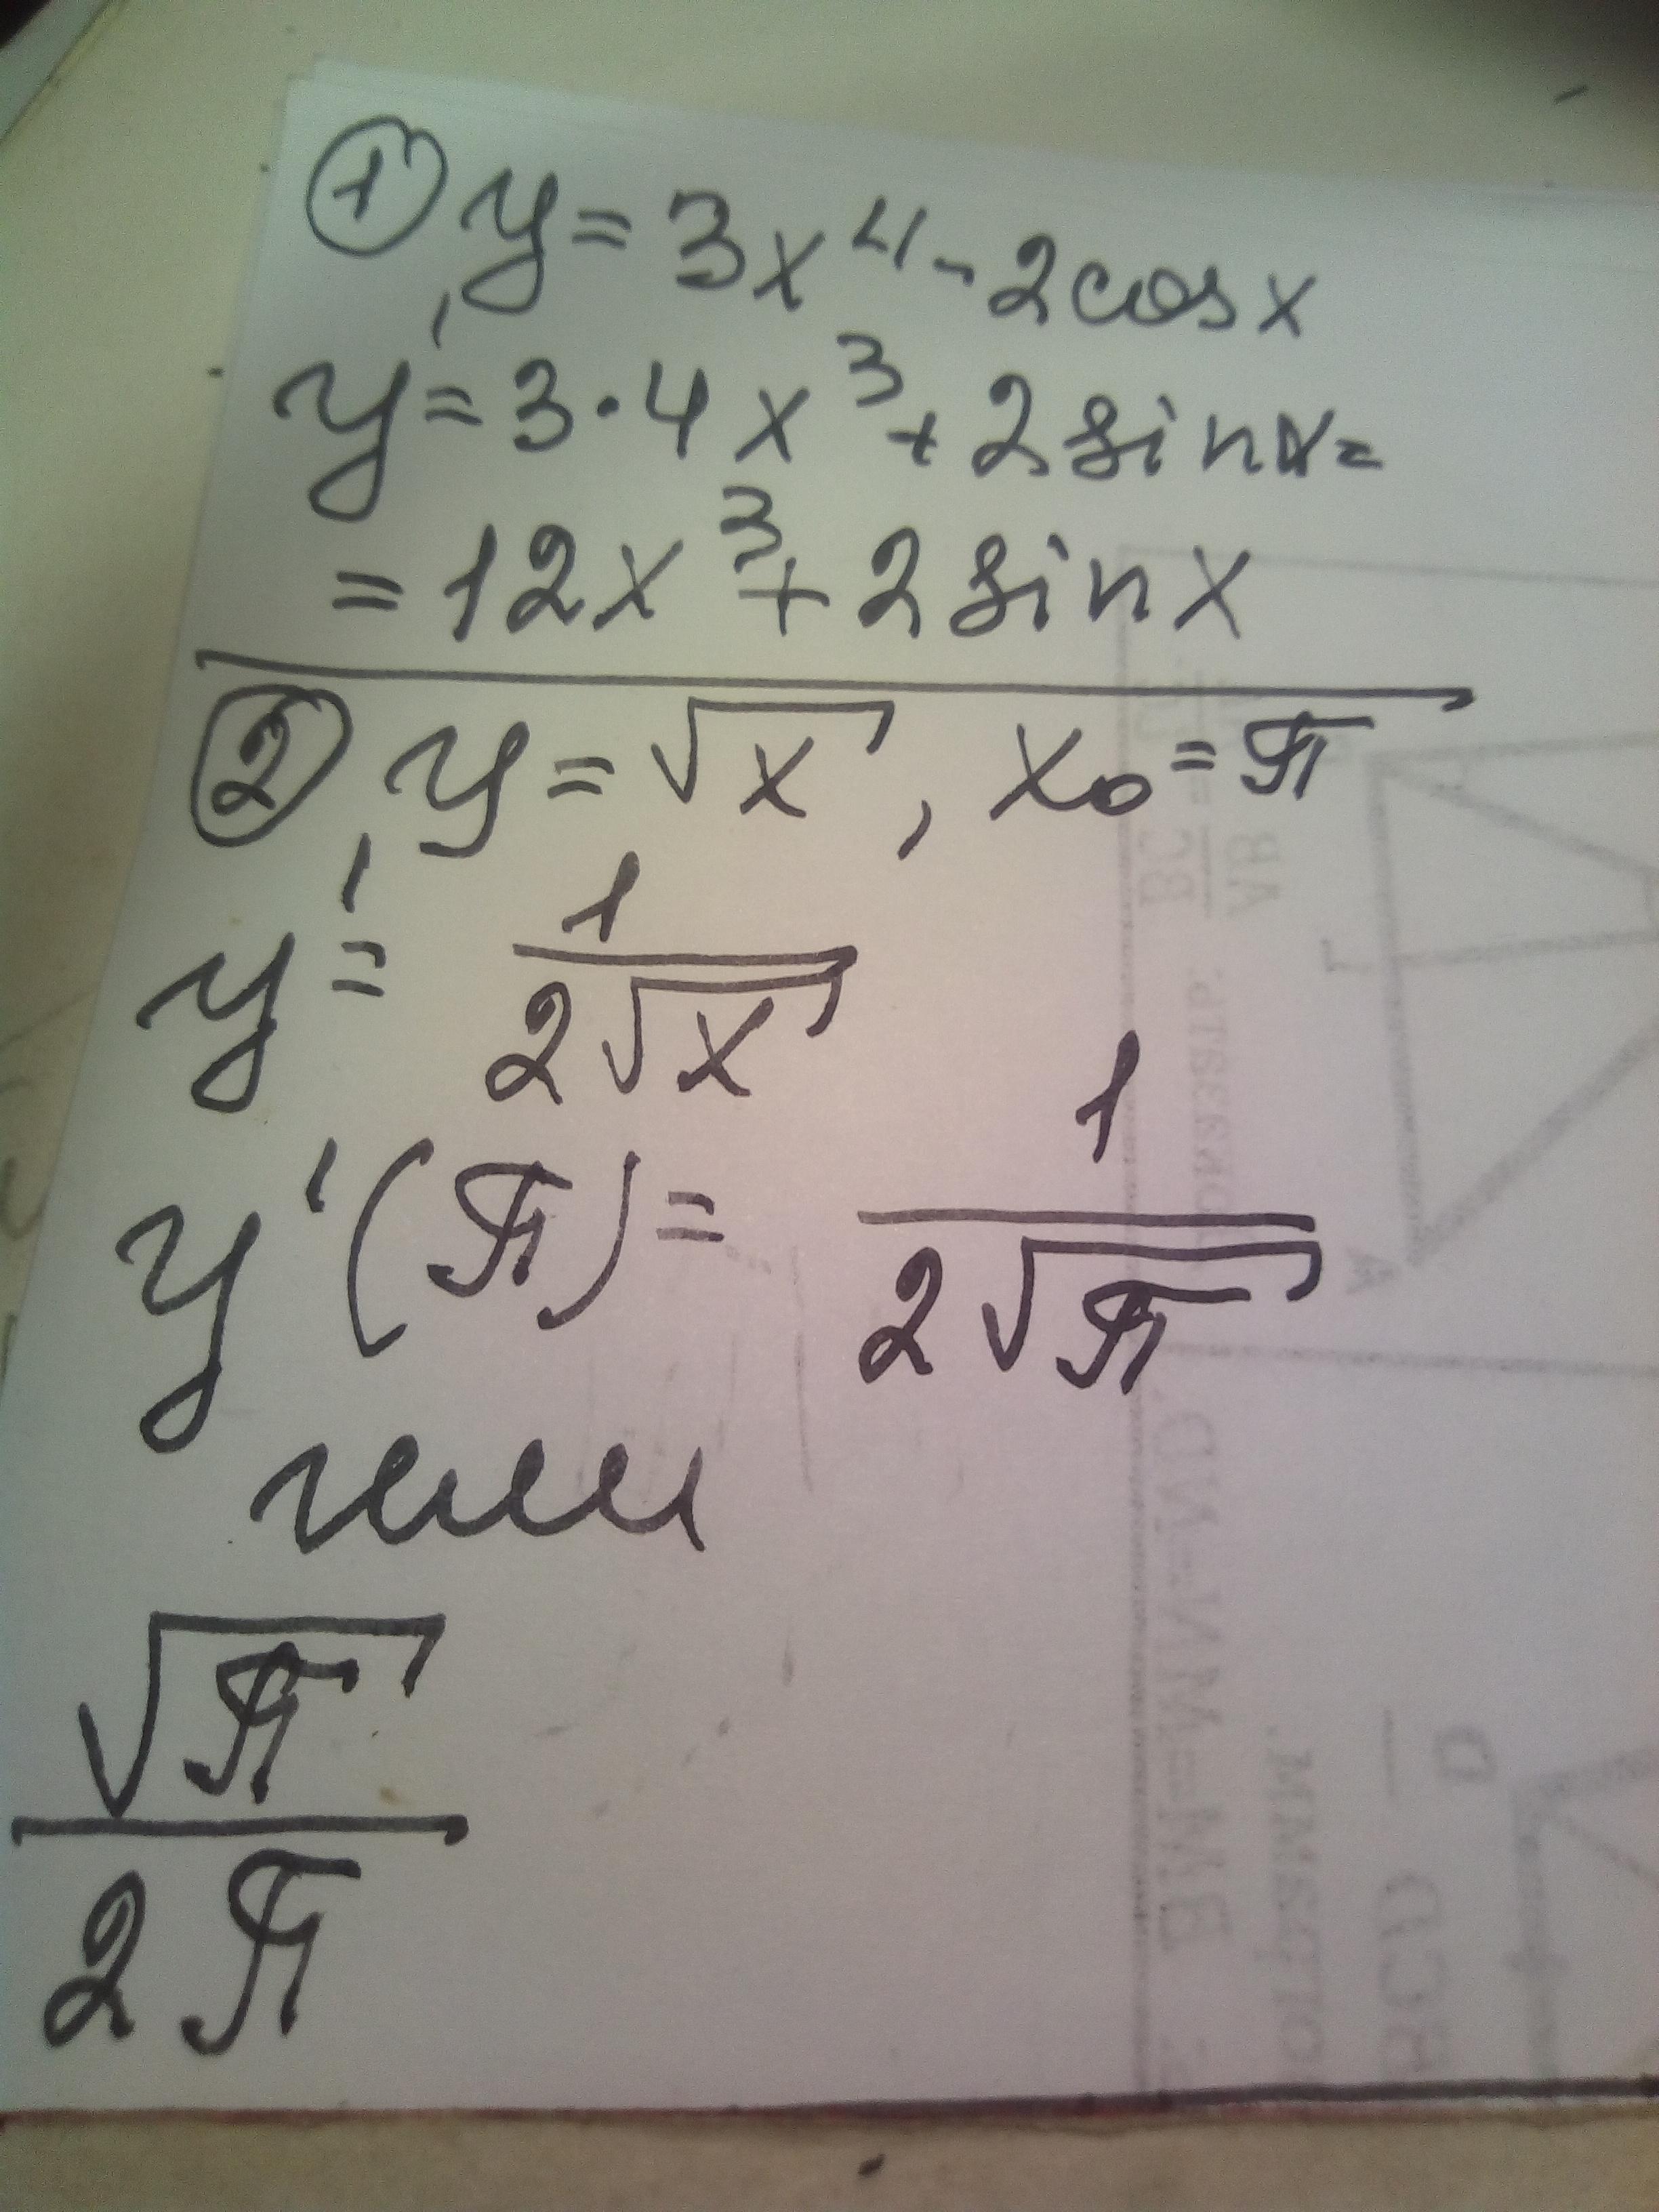 ① y = 3x⁴ - 2cosx
y' = 3·4x³ + 2sinx =
= 12x³ + 2sinx
② y = √x, x₀ = π
y' = 1/(2√x)
y'(π) = 1/(2√π)
или
√π/(2π)